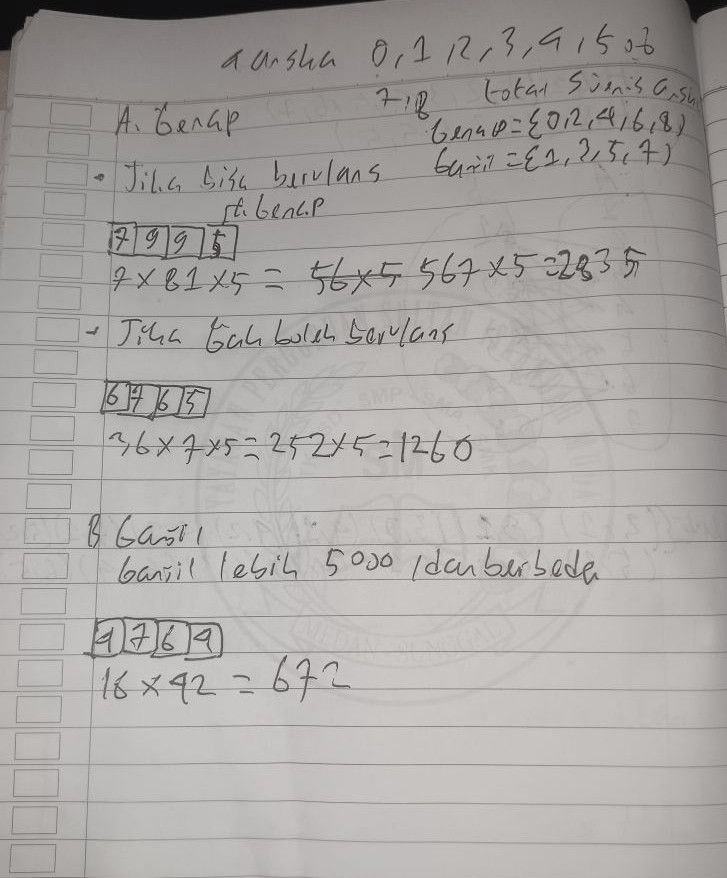 4 angka 0, 1, 2, 3, 4, 5, 6
7, 8 total jenis
A. Genap
Genap = {0, 2, 4, 6, 8}
Ganjil = {1, 3, 5, 7}
• Jika bisa berulang
genap
7 9 9 5
7 × 81 × 5 = 56 × 5 567 × 5 = 2835
Jika gak boleh berulang
6 7 6 5
36 × 7 × 5 = 252 × 5 = 1260
B Ganjil
Ganjil lebih 5000 dan berbeda
4 7 6 4
16 × 42 = 672